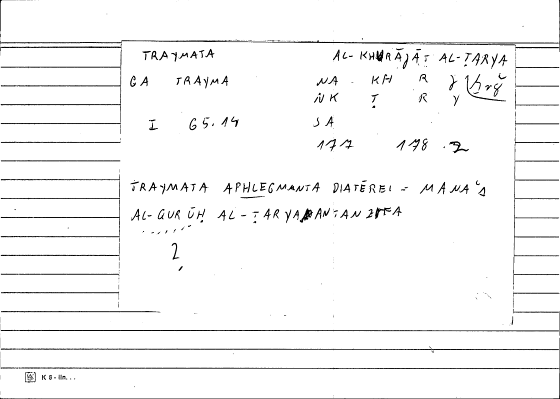 TRAYMATA AL-KHURĀJĀT AL-ṬARYA
GA TRAYMA NA KH R J ḫrǧ
NK Ṭ R Y
I 65.14 SA
177 178.2
TRAYMATA APHLEGMANTA DIATĒREI = MANA'A
AL-GURŪḤ AL-ṬARYA
2
K 8 - lin...